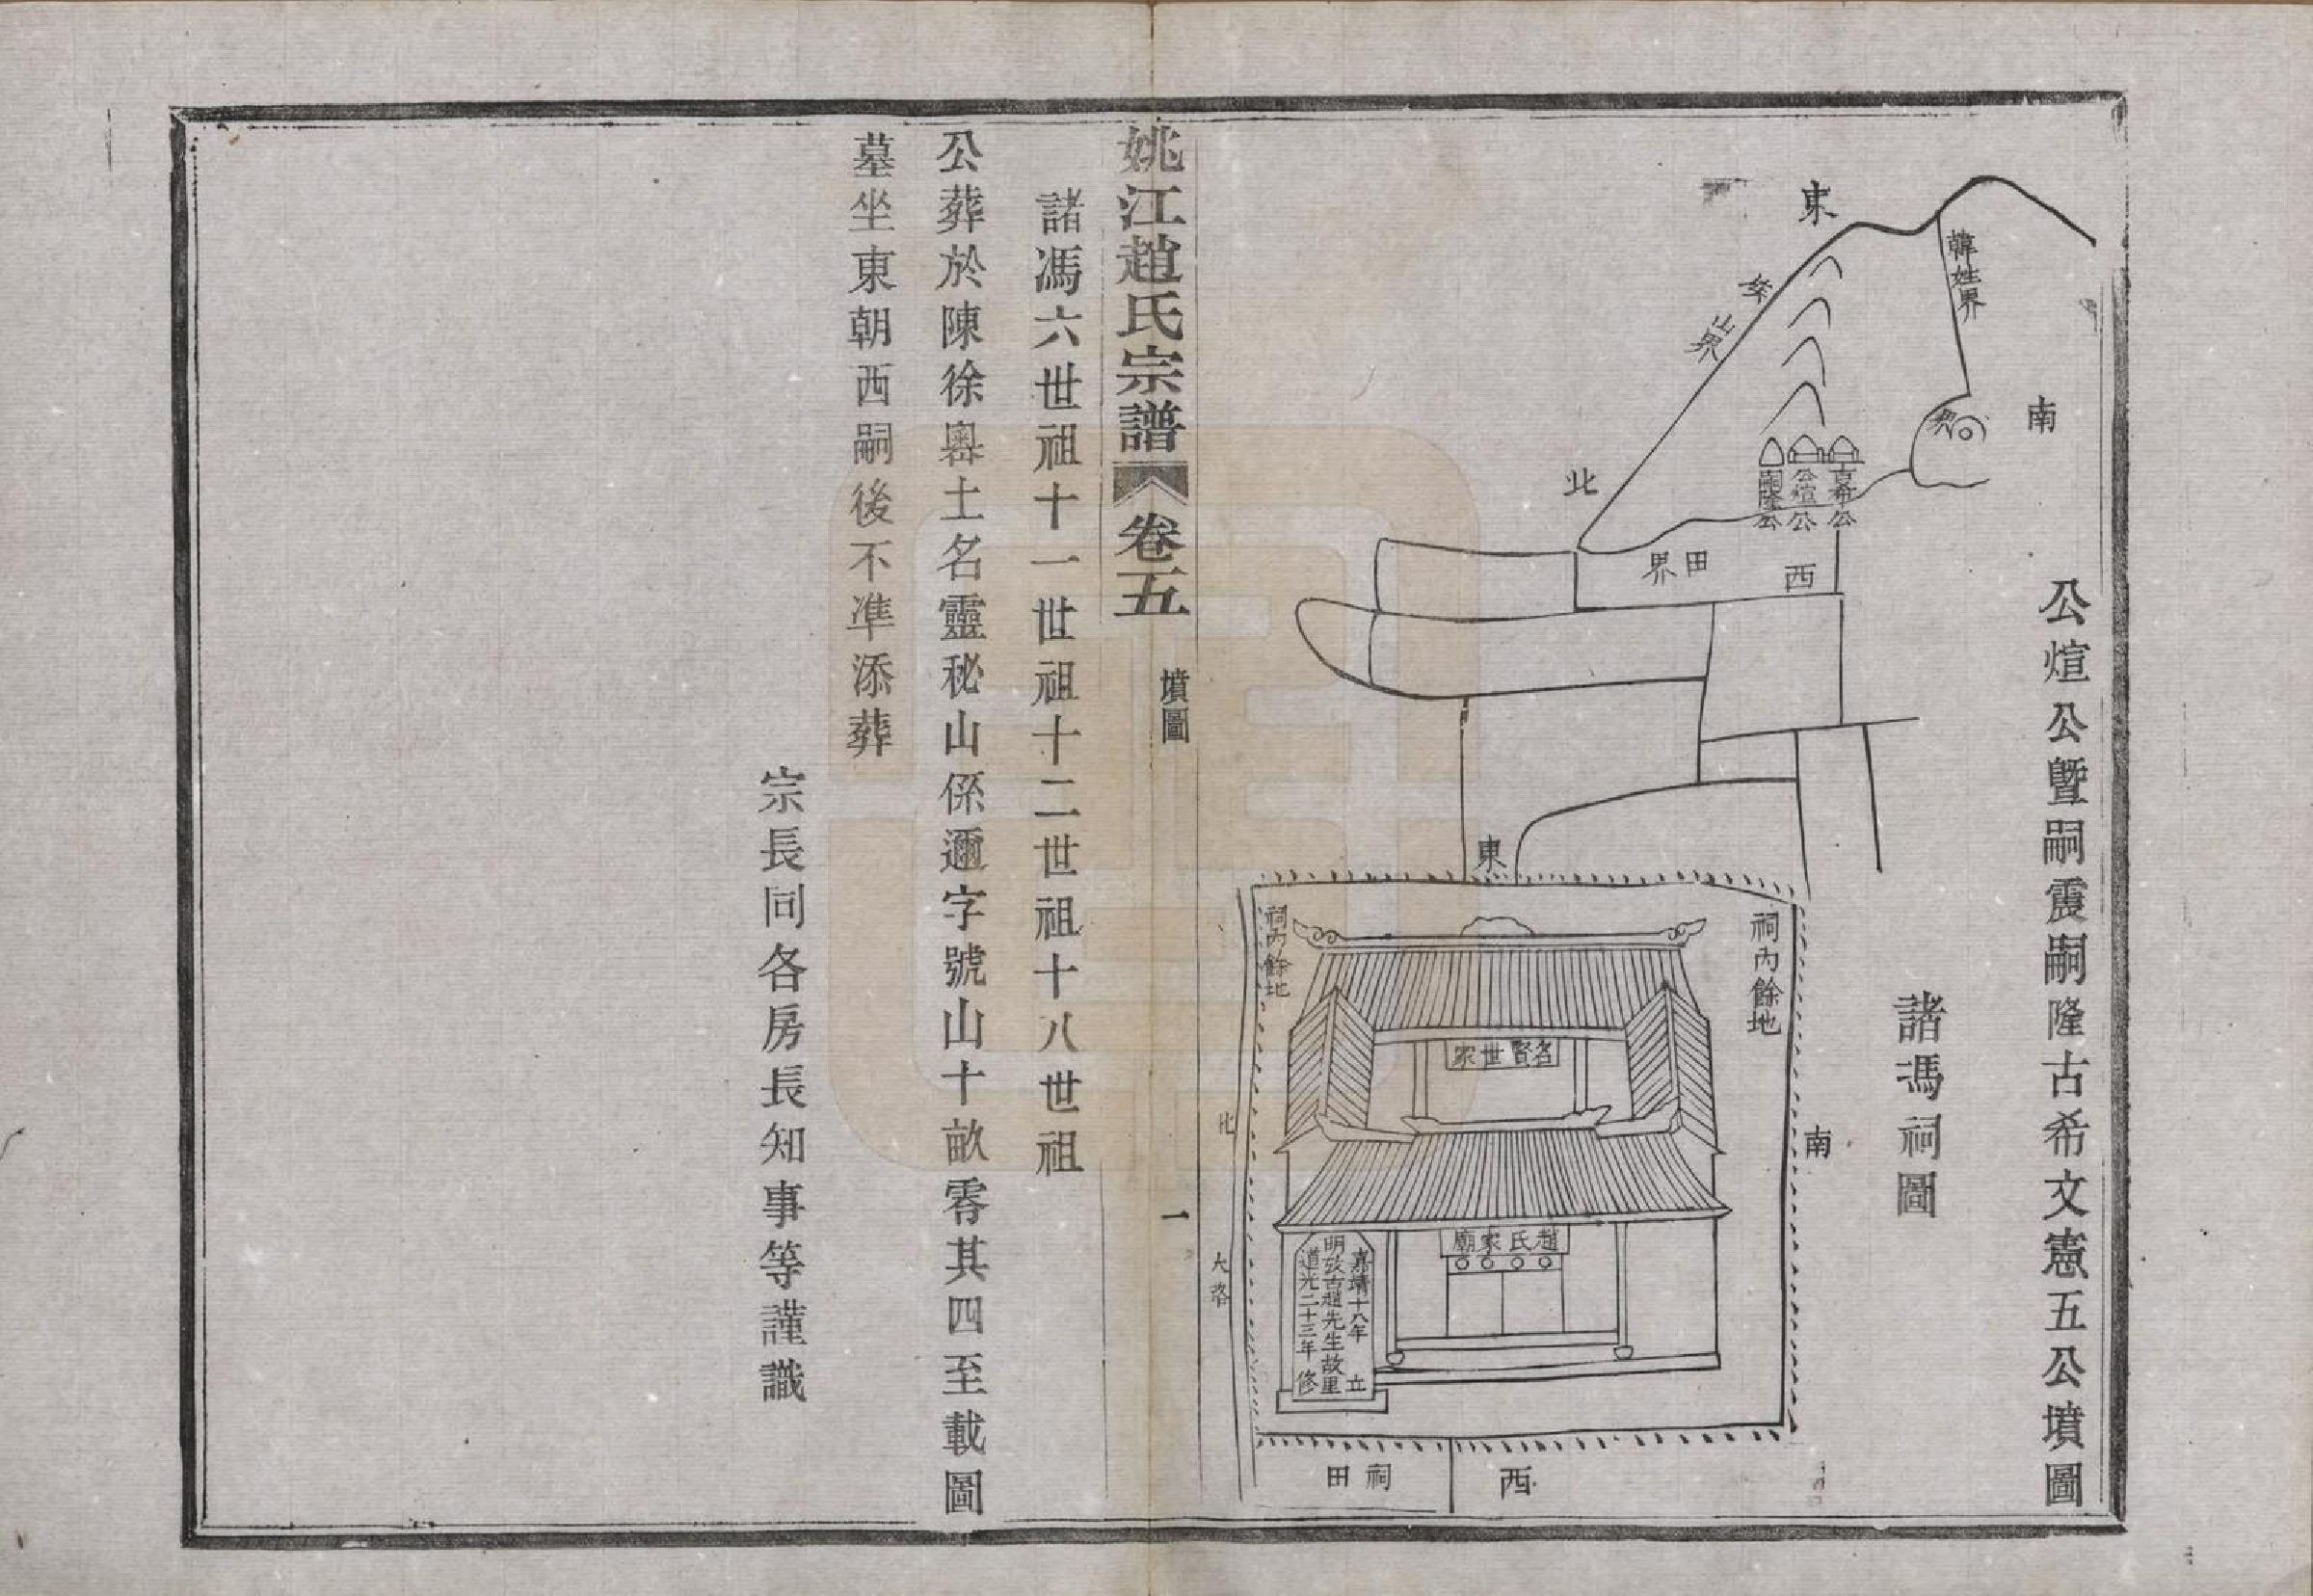 公煊公暨嗣震嗣隆古希文憲五公墳圖
諸馮祠圖
東
南
北
西
韓姓界
界
山界
田界
古希公
公煊公
嗣隆公
東
南
北
西
祠內餘地
祠內餘地
名賢世家
趙氏家廟
嘉靖十八年 立
明故古趙先生故里
道光二十三年 修
大路
祠田
姚江趙氏宗譜 卷五 墳圖 一
諸馮六世祖十一世祖十二世祖十八世祖
公葬於陳徐嶴土名靈秘山係邇字號山十畝零其四至載圖
墓坐東朝西嗣後不凖添葬
宗長同各房長知事等謹識